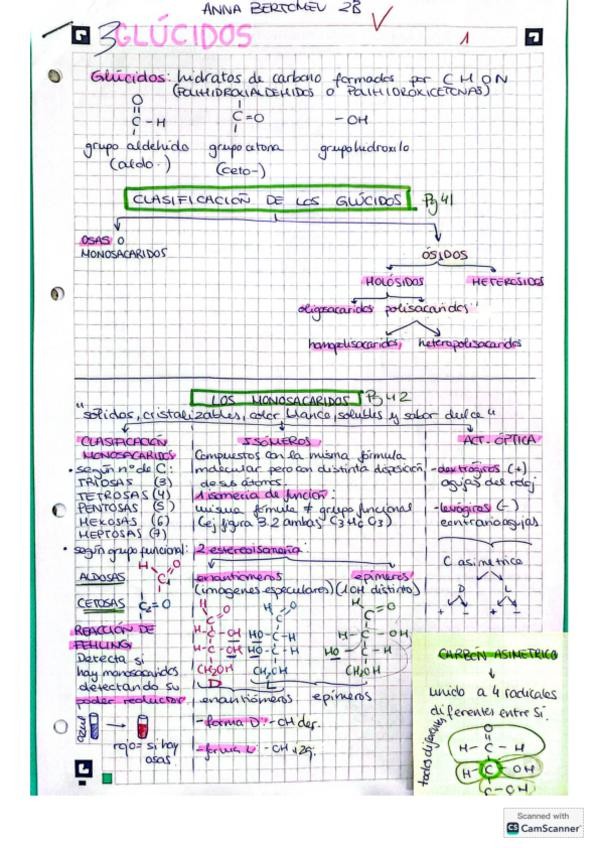 ANNA BERTOMEU 2B
3 GLÚCIDOS
1
Glúcidos: hidratos de carbono formados por C H O N
(POLIHIDROXIALDEHIDOS O POLIHIDROXICETONAS)
O
C - H
C = O
- OH
grupo aldehído grupo cetona grupo hidroxilo
(aldo-) (ceto-)
CLASIFICACIÓN DE LOS GLÚCIDOS Pg 41
OSAS O
MONOSACARIDOS
ÓSIDOS
HOLÓSIDOS HETERÓSIDOS
oligosacaridos polisacaridos
homopolisacaridos heteropolisacaridos
LOS MONOSACARIDOS Pg 42
"solidos, cristalizables, color blanco, solubles y sabor dulce"
CLASIFICACIÓN
MONOSACARIDOS
• según nº de C:
TRIOSAS (3)
TETROSAS (4)
PENTOSAS (5)
HEXOSAS (6)
HEPTOSAS (7)
• según grupo funcional:
ALDOSAS
H O
C
CETOSAS
C = O
REACCIÓN DE
FEHLING
Detecta si
hay monosacaridos
detectando su
poder reductor
azul
rojo = si hay
osas
ISÓMEROS
Compuestos con la misma fórmula
molecular pero con distinta disposición
de sus átomos.
1 isomeria de función:
misma fórmula ≠ grupo funcional
(ej figura 3.2 ambas C3 H6 O3)
2 estereoisomería:
enantiómeros epímeros
(imagenes especulares) (1 OH distinto)
H - C - OH HO - C - H H - C - OH
H - C - OH HO - C - H HO - C - H
CH2OH CH2OH CH2OH
D L
enantiómeros epímeros
- forma D: - OH der.
- forma L: - OH izq.
ACT. ÓPTICA
- dextrógiros (+)
agujas del reloj
- levógiros (-)
contrario agujas
C asimetrico
D L
+ - + -
CARBÓN ASIMETRICO
unido a 4 radicales
diferentes entre sí.
todos diferentes
O
H - C - H
H - C - OH
C - OH
Scanned with
CS CamScanner